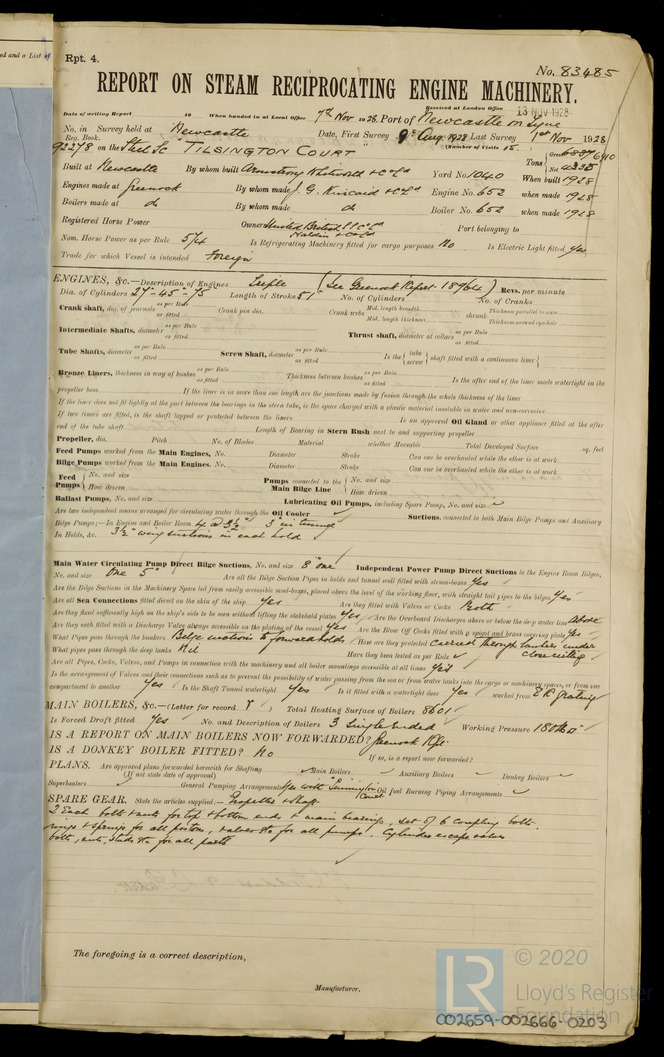 ed and a List of
Rpt. 4.
No. 83485
REPORT ON STEAM RECIPROCATING ENGINE MACHINERY.
Received at London Office 13 NOV 1928
Date of writing Report 19 When handed in at Local Office 7th Nov 1928 Port of Newcastle on Tyne
No. in Reg. Book. Survey held at Newcastle Date, First Survey 9th Aug. 1928 Last Survey 1st Nov 1928
(Number of Visits 15
92278 on the Steel Sc "TILSINGTON COURT
Tons Gross 6910 Net
Built at Newcastle By whom built Armstrong Whitworth & Co Ld Yard No 1040 When built 1928
Engines made at Greenock By whom made J. G. Kincaid & Co Ld Engine No. 652 when made 1928
Boilers made at do By whom made do Boiler No. 652 when made 1928
Registered Horse Power Owners United British SS Co Ld Port belonging to
Haldin & Co Ld
Nom. Horse Power as per Rule 574 Is Refrigerating Machinery fitted for cargo purposes No Is Electric Light fitted Yes
Trade for which Vessel is intended Foreign
ENGINES, &c.—Description of Engines Triple (See Greenock Report 18964) Revs. per minute
Dia. of Cylinders 27"-45"-75 Length of Stroke 51 No. of Cylinders No. of Cranks
Crank shaft, dia. of journals as per Rule as fitted Crank pin dia. Crank webs Mid. length breadth Mid. length thickness shrunk Thickness parallel to axis Thickness around eye-hole
Intermediate Shafts, diameter as per Rule as fitted Thrust shaft, diameter at collars as per Rule as fitted
Tube Shafts, diameter as per Rule as fitted Screw Shaft, diameter as per Rule as fitted Is the { tube screw } shaft fitted with a continuous liner {
Bronze Liners, thickness in way of bushes as per Rule as fitted Thickness between bushes as per Rule as fitted Is the after end of the liner made watertight in the
propeller boss If the liner is in more than one length are the junctions made by fusion through the whole thickness of the liner
If the liner does not fit tightly at the part between the bearings in the stern tube, is the space charged with a plastic material insoluble in water and non-corrosive
If two liners are fitted, is the shaft lapped or protected between the liners Is an approved Oil Gland or other appliance fitted at the after
end of the tube shaft Length of Bearing in Stern Bush next to and supporting propeller
Propeller, dia. Pitch No. of Blades Material whether Moveable Total Developed Surface sq. feet
Feed Pumps worked from the Main Engines, No. Diameter Stroke Can one be overhauled while the other is at work
Bilge Pumps worked from the Main Engines, No. Diameter Stroke Can one be overhauled while the other is at work
Feed Pumps { No. and size How driven Pumps connected to the Main Bilge Line { No. and size How driven
Ballast Pumps, No. and size Lubricating Oil Pumps, including Spare Pump, No. and size
Are two independent means arranged for circulating water through the Oil Cooler Suctions, connected to both Main Bilge Pumps and Auxiliary
Bilge Pumps;—In Engine and Boiler Room 4 @ 3½" 3" in tunnel
In Holds, &c. 3½" wing suctions in each hold
Main Water Circulating Pump Direct Bilge Suctions, No. and size 8" one Independent Power Pump Direct Suctions to the Engine Room Bilges,
No. and size One 5" Are all the Bilge Suction Pipes in holds and tunnel well fitted with strum-boxes Yes
Are the Bilge Suctions in the Machinery Space led from easily accessible mud-boxes, placed above the level of the working floor, with straight tail pipes to the bilges Yes
Are all Sea Connections fitted direct on the skin of the ship Yes Are they fitted with Valves or Cocks Both
Are they fixed sufficiently high on the ship's side to be seen without lifting the stokehold plates Yes Are the Overboard Discharges above or below the deep water line above
Are they each fitted with a Discharge Valve always accessible on the plating of the vessel Yes Are the Blow Off Cocks fitted with a spigot and brass covering plate Yes
What Pipes pass through the bunkers Bilge suctions to forward holds How are they protected Carried through bunkers under close ceiling
What pipes pass through the deep tanks Nil Have they been tested as per Rule
Are all Pipes, Cocks, Valves, and Pumps in connection with the machinery and all boiler mountings accessible at all times Yes
Is the arrangement of Valves and their connections such as to prevent the possibility of water passing from the sea or from water tanks into the cargo or machinery spaces, or from one
compartment to another Yes Is the Shaft Tunnel watertight Yes Is it fitted with a watertight door Yes worked from E.R. grating
MAIN BOILERS, &c.—(Letter for record Y) Total Heating Surface of Boilers 8601
Is Forced Draft fitted Yes No. and Description of Boilers 3 Single Ended Working Pressure 180 lbs
IS A REPORT ON MAIN BOILERS NOW FORWARDED? Greenock Rpt.
IS A DONKEY BOILER FITTED? No If so, is a report now forwarded?
PLANS. Are approved plans forwarded herewith for Shafting Main Boilers Auxiliary Boilers Donkey Boilers
(If not state date of approval)
Superheaters General Pumping Arrangements Yes with "Leamington Court" Oil fuel Burning Piping Arrangements
SPARE GEAR. State the articles supplied:— Propeller & shaft
2 Each bolts & nuts for top & bottom ends & main bearings, set of 6 coupling bolts.
rings & springs for all pistons, valves &c for all pumps. Cylinder escape valves
bolts, nuts, studs &c for all parts
The foregoing is a correct description,
Manufacturer.
LR
© 2020
Lloyd's Register
Foundation
002659-002666-0203